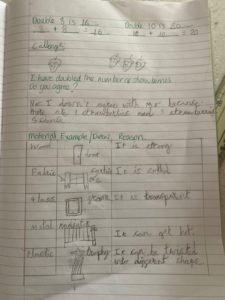 Double 8 is 16 Double 10 is 20
8 + 8 = 16 10 + 10 = 20
I have doubled the number of strawberries
do you agree?
No I don't agree with
because
there are 1 strawberries and 3 strawberries
Material Example/Draw Reason
Wood door It is strong
Fabric It is
glass It is transparent
metal radiator It can get hot.
Plastic It can be twisted
into different shape